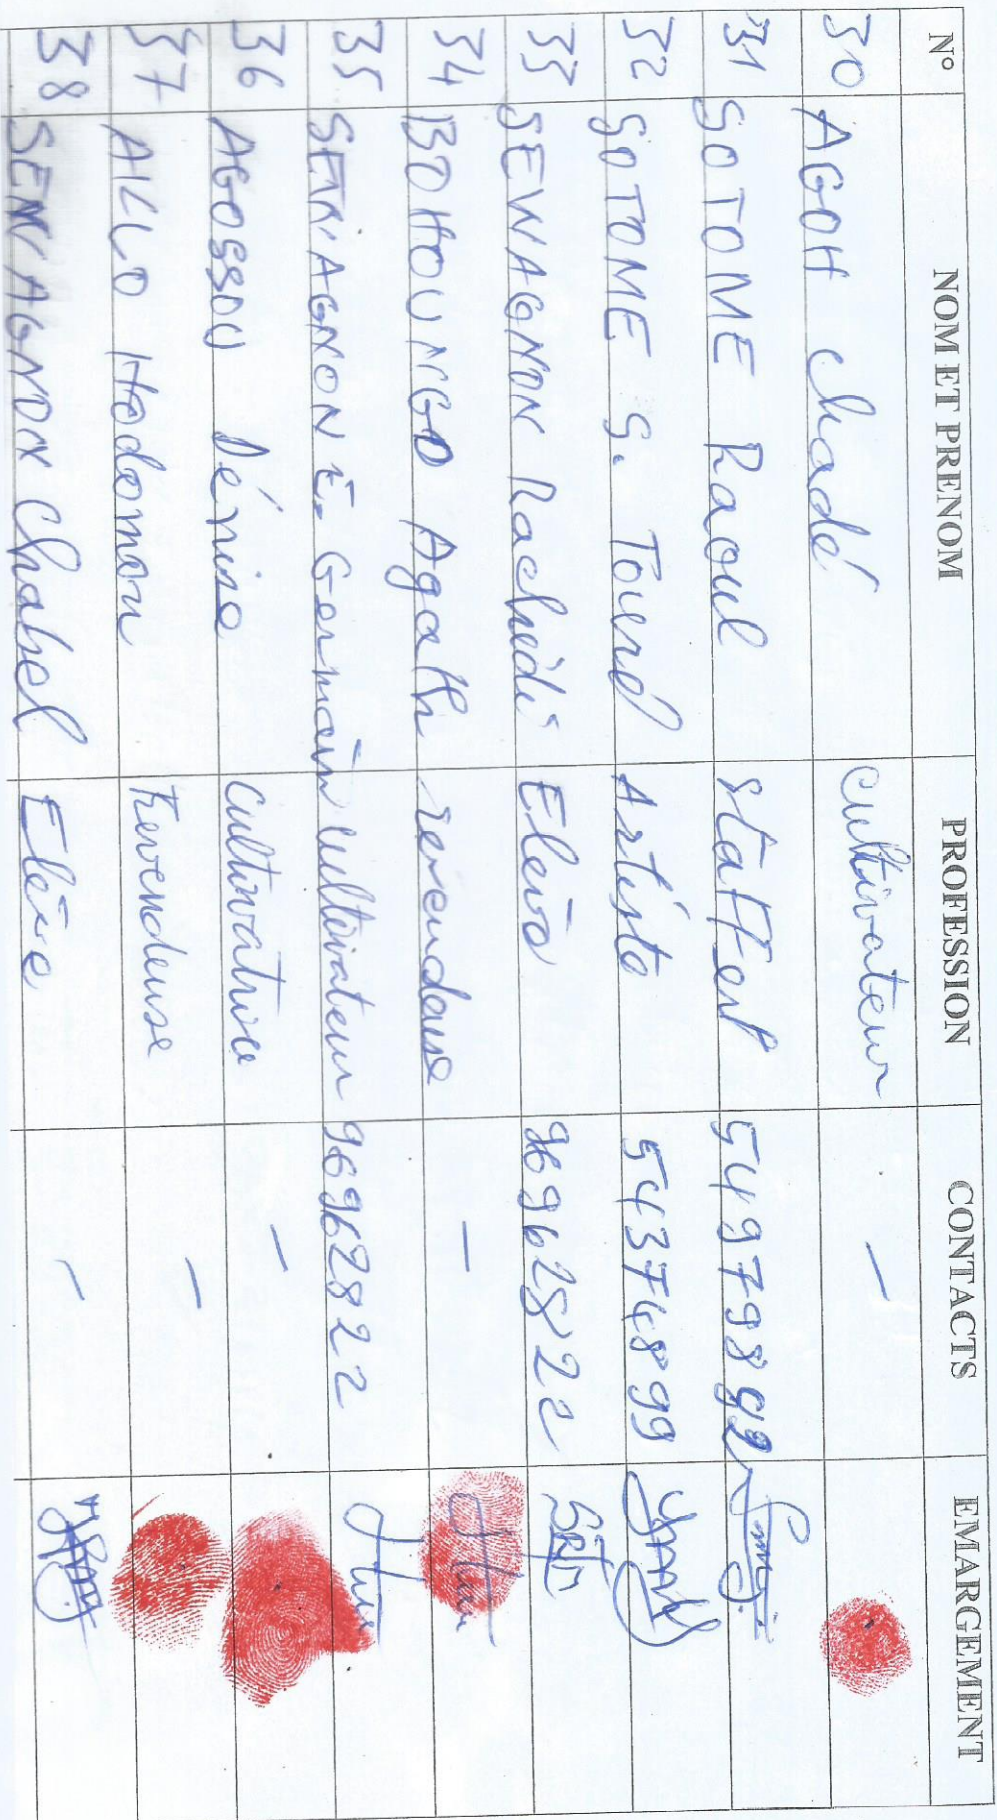 N° NOM ET PRENOM PROFESSION CONTACTS EMARGEMENT
30 AGOH Chadé Cultivateur —
31 SOTOME Raoul staffeur 54979892
32 SOTOME S. Toierd Artiste 54374899
33 SEWAGNON Rachidi Elève 96962822
34 BOHOUNGO Agath revendeuse —
35 SEWAGNON E. Germain Cultivateur 96962822
36 AGOSSOU Dénise Cultivatrice —
37 AILLO Hodonou Revendeuse —
38 SEWAGNON Chabel Elève —